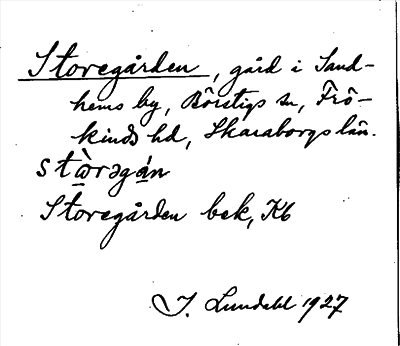 Storegården, gård i Sand-
hems by, Börstigs sn, Frö-
kinds hd, Skaraborgs län.
stɷ̀rəgá̱n
Storegården bek, Kb
I. Lundahl 1927